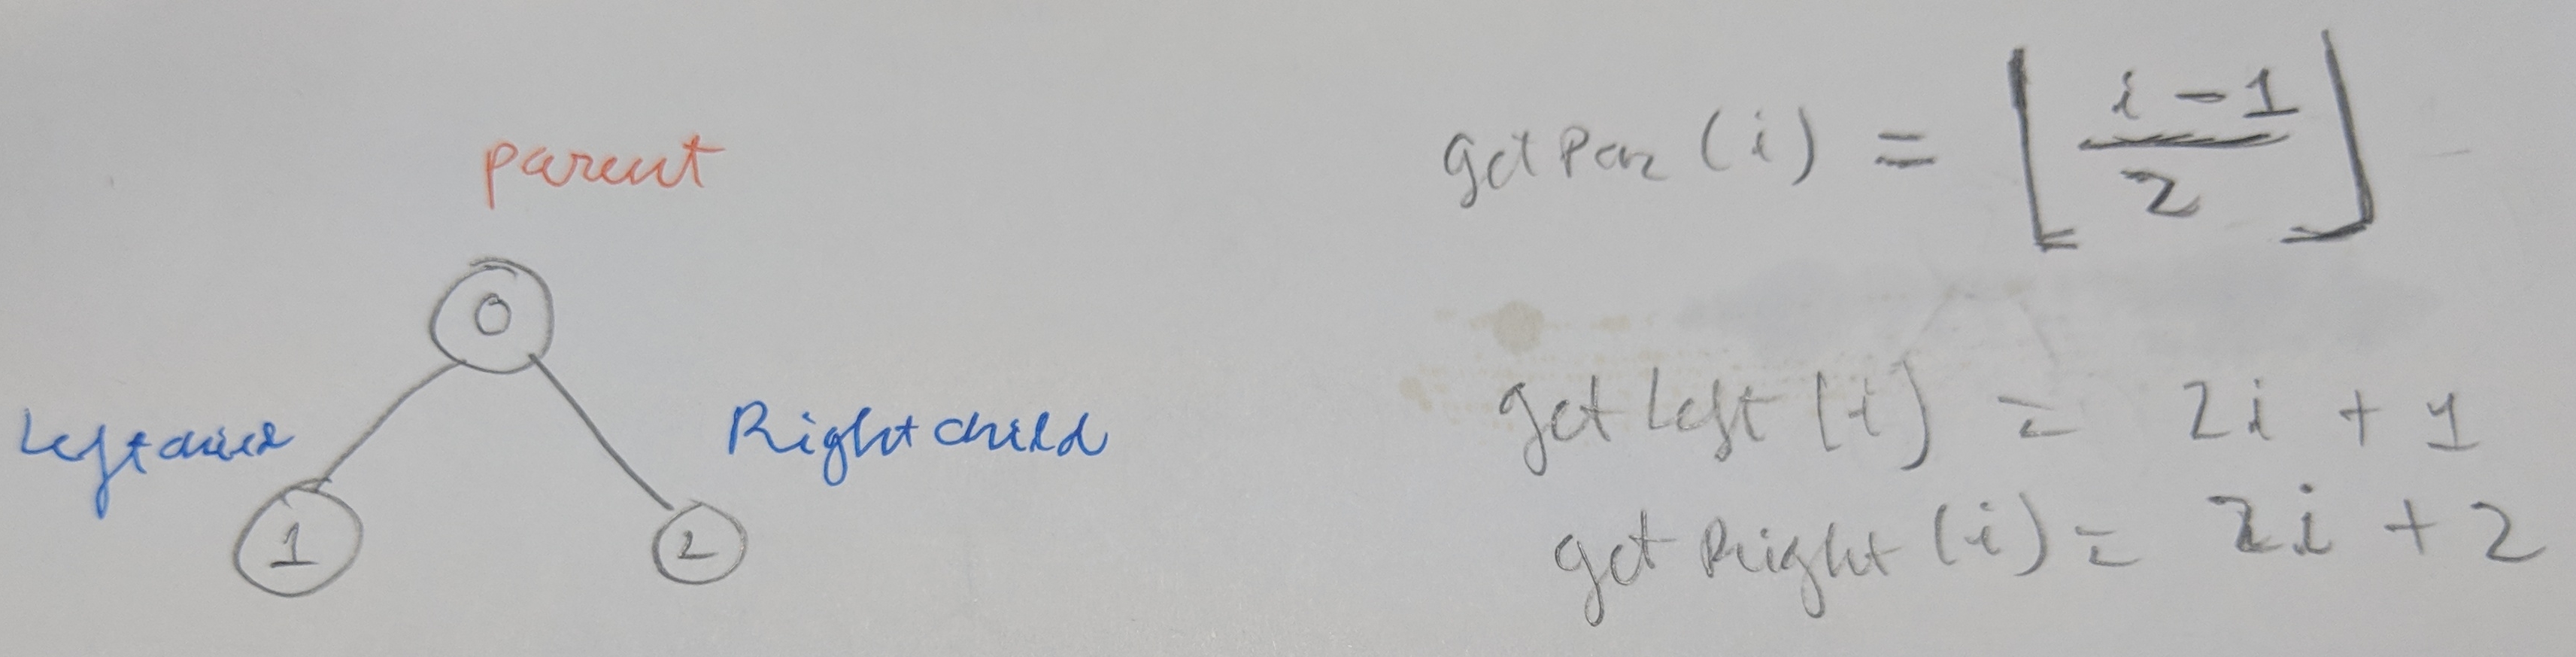 parent
0
Left child
Right child
1
2
getPar (i) = ⌊ i - 1 / 2 ⌋
getLeft (i) = 2i + 1
getRight (i) = 2i + 2